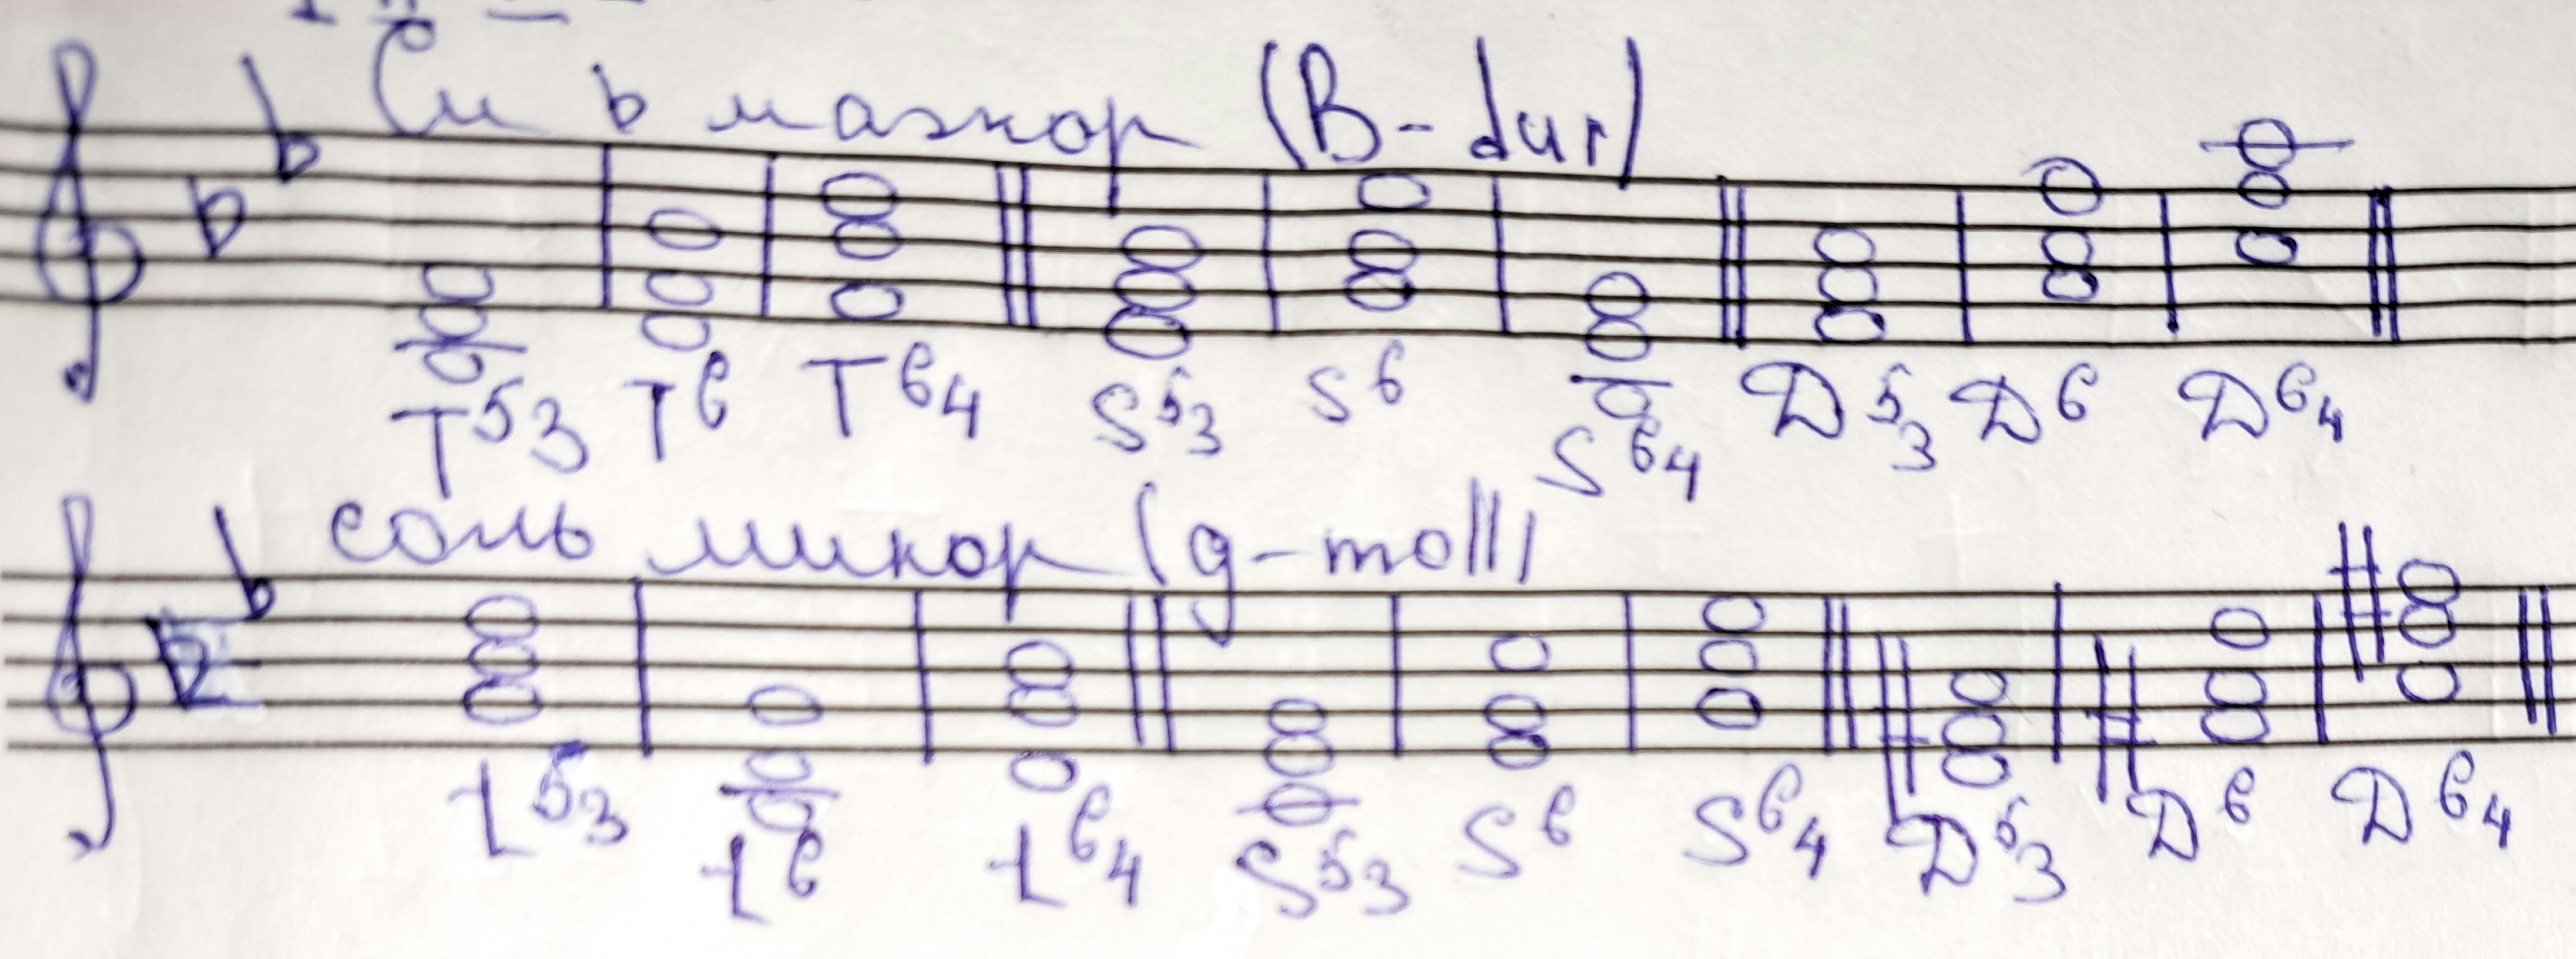 Си ♭ мажор (B-dur)
T⁵₃ T⁶ T⁶₄ S⁵₃ S⁶ S⁶₄ D⁵₃ D⁶ D⁶₄
соль минор (g-moll)
t⁵₃ t⁶ t⁶₄ S⁵₃ S⁶ S⁶₄ D⁵₃ D⁶ D⁶₄